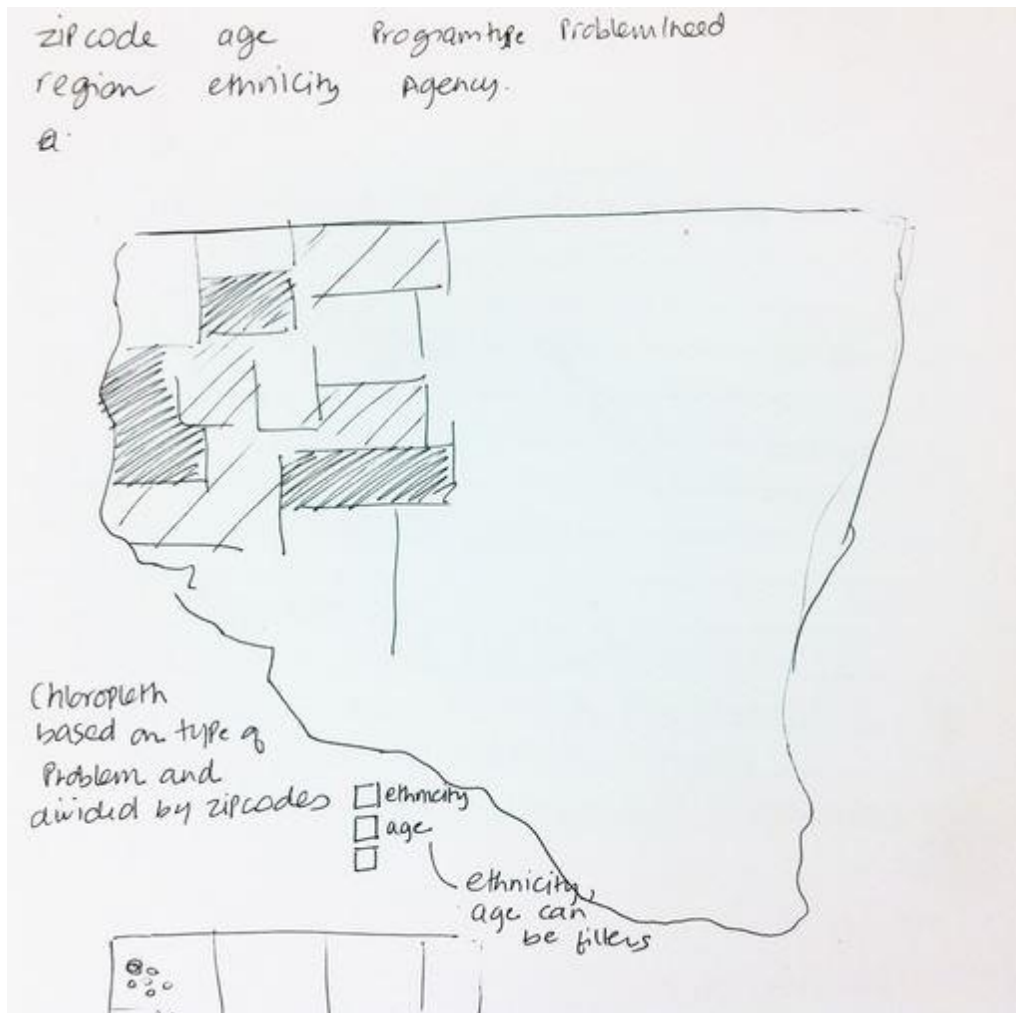 zip code age Programtype Problem/need
region ethnicity Agency.
Chloropleth
based on type of
Problem and
divided by zipcodes
ethnicity
age
ethnicity,
age can
be filters